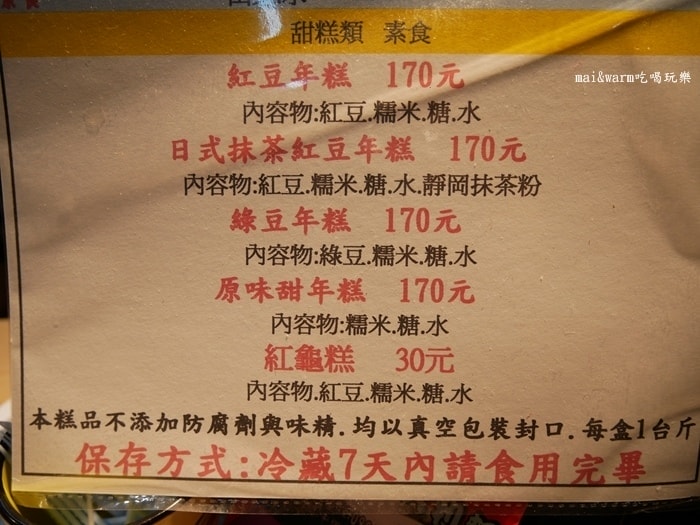 甜糕類 素食
mai&warm吃喝玩樂
紅豆年糕 170元
內容物:紅豆.糯米.糖.水
日式抹茶紅豆年糕 170元
內容物:紅豆.糯米.糖.水.靜岡抹茶粉
綠豆年糕 170元
內容物:綠豆.糯米.糖.水
原味甜年糕 170元
內容物:糯米.糖.水
紅龜糕 30元
內容物.紅豆.糯米.糖.水
本糕品不添加防腐劑與味精.均以真空包裝封口.每盒1台斤
保存方式:冷藏7天內請食用完畢